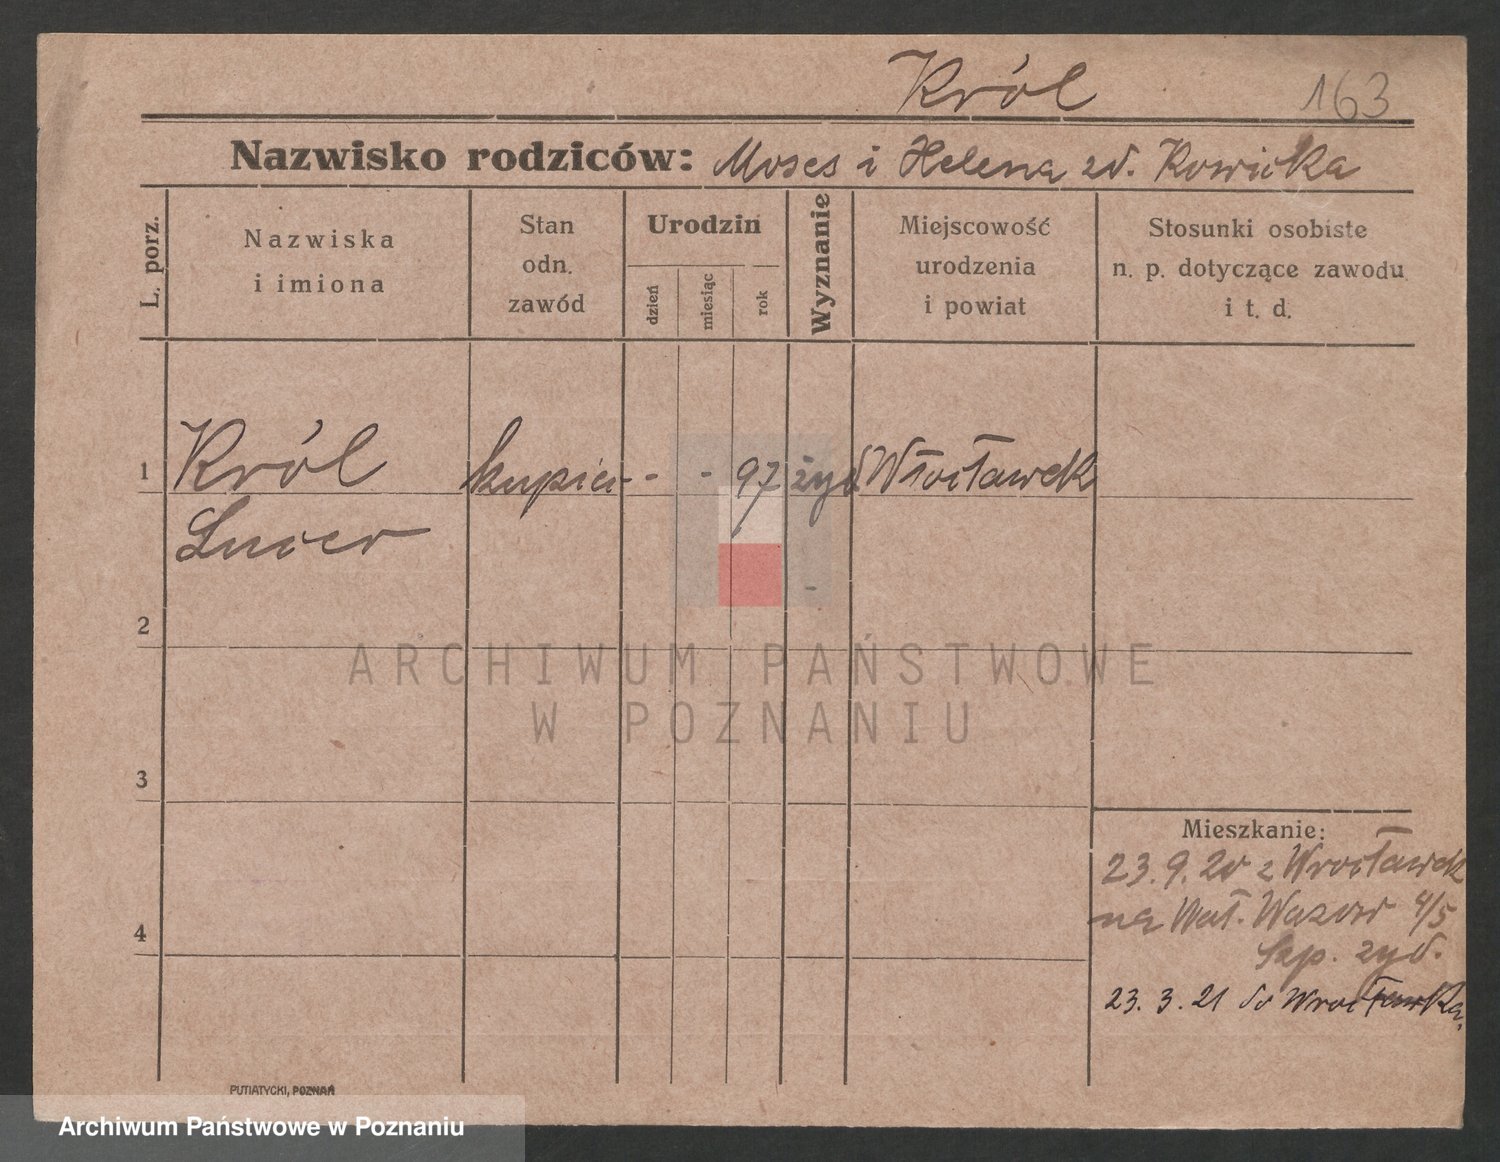 Król 163
Nazwisko rodziców: Moses i Helena zd. Kowicka
L. porz.
Nazwiska
i imiona
Stan
odn.
zawód
Urodzin
dzień
miesiąc
rok
Wyznanie
Miejscowość
urodzenia
i powiat
Stosunki osobiste
n. p. dotyczące zawodu
i t. d.
1 Król kupiec - - 97 żyd Włocławek
2
3
4
Mieszkanie:
23.9.20 z Włocławek
na Wał. Wazów 4/5
Szp. żyd.
23.3.21 do Włocławka.
PUTIATYCKI, POZNAŃ
ARCHIWUM PAŃSTWOWE
W POZNANIU
Archiwum Państwowe w Poznaniu